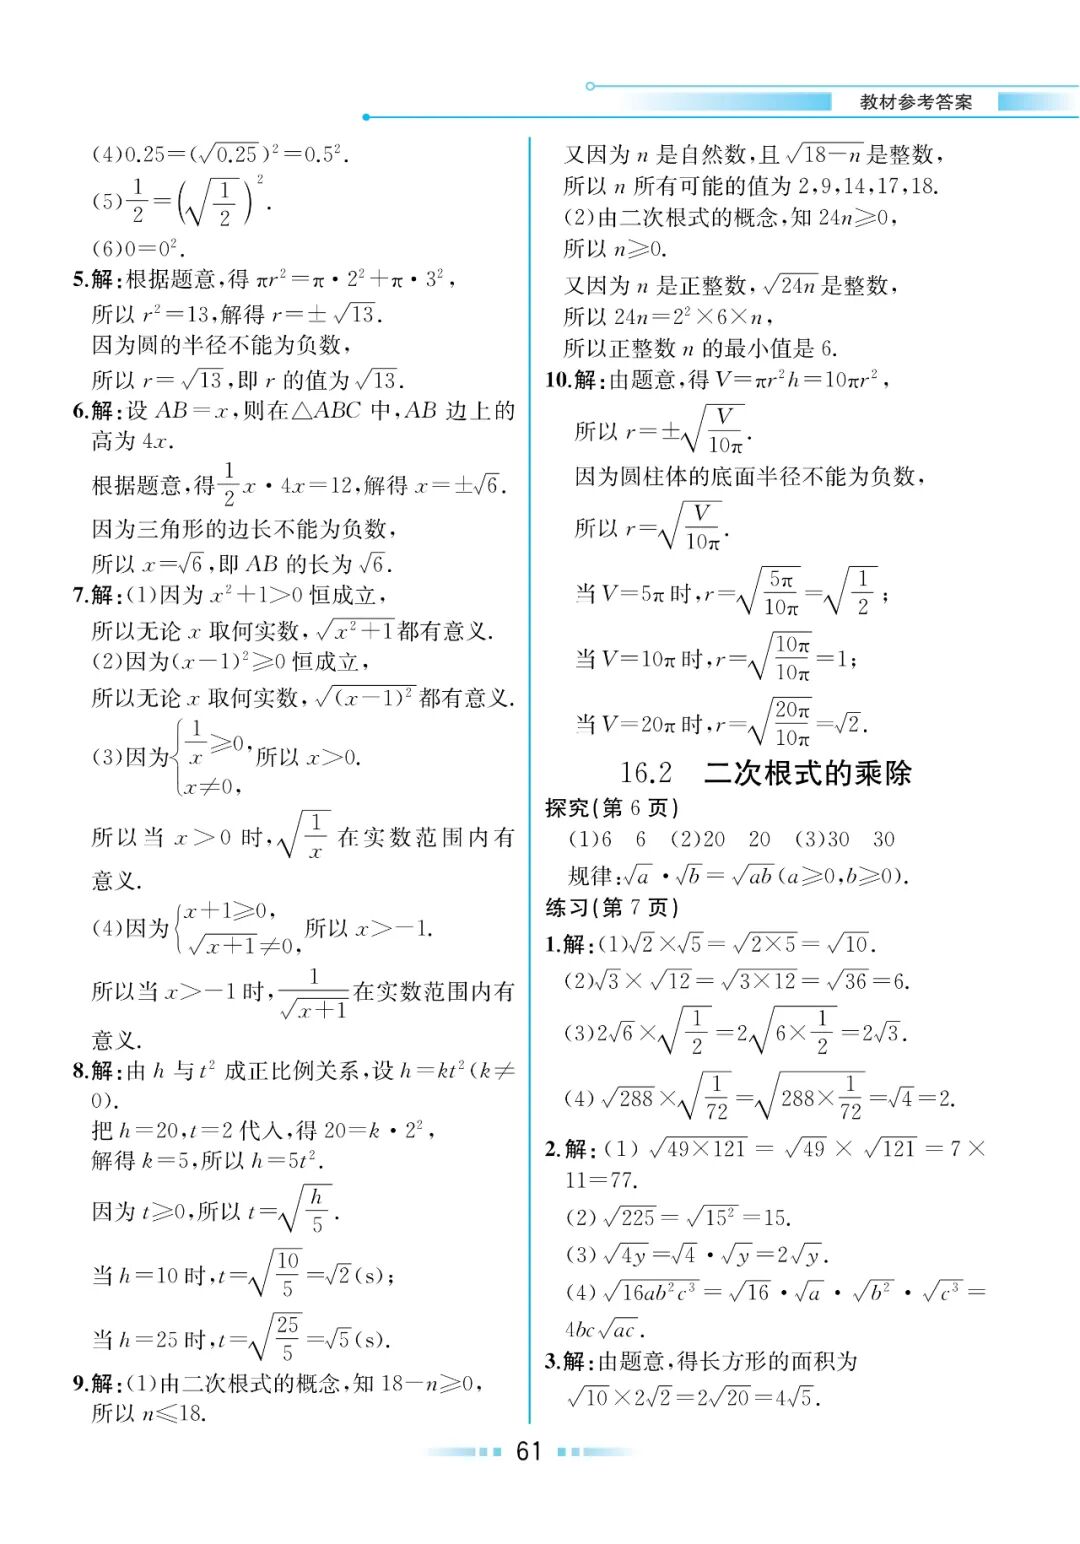 教材参考答案
(4)0.25=(√0.25)²=0.5².
(5)1/2=(√(1/2))².
(6)0=0².
5.解:根据题意,得 πr²=π·2²+π·3²,
所以 r²=13,解得 r=±√13.
因为圆的半径不能为负数,
所以 r=√13,即 r 的值为√13.
6.解:设 AB=x,则在△ABC 中,AB 边上的
高为 4x.
根据题意,得1/2x·4x=12,解得 x=±√6.
因为三角形的边长不能为负数,
所以 x=√6,即 AB 的长为√6.
7.解:(1)因为 x²+1>0 恒成立,
所以无论 x 取何实数,√(x²+1)都有意义.
(2)因为(x-1)²≥0 恒成立,
所以无论 x 取何实数,√((x-1)²)都有意义.
(3)因为{1/x≥0, x≠0, 所以 x>0.
所以当 x>0 时,√(1/x)在实数范围内有
意义.
(4)因为{x+1≥0, √(x+1)≠0, 所以 x>-1.
所以当 x>-1 时,1/√(x+1)在实数范围内有
意义.
8.解:由 h 与 t² 成正比例关系,设 h=kt²(k≠
0).
把 h=20,t=2 代入,得 20=k·2²,
解得 k=5,所以 h=5t².
因为 t≥0,所以 t=√(h/5).
当 h=10 时,t=√(10/5)=√2(s);
当 h=25 时,t=√(25/5)=√5(s).
9.解:(1)由二次根式的概念,知 18-n≥0,
所以 n≤18.
又因为 n 是自然数,且√(18-n)是整数,
所以 n 所有可能的值为 2,9,14,17,18.
(2)由二次根式的概念,知 24n≥0,
所以 n≥0.
又因为 n 是正整数,√(24n)是整数,
所以 24n=2²×6×n,
所以正整数 n 的最小值是 6.
10.解:由题意,得 V=πr²h=10πr²,
所以 r=±√(V/10π).
因为圆柱体的底面半径不能为负数,
所以 r=√(V/10π).
当 V=5π 时,r=√(5π/10π)=√(1/2);
当 V=10π 时,r=√(10π/10π)=1;
当 V=20π 时,r=√(20π/10π)=√2.
16.2 二次根式的乘除
探究(第 6 页)
(1)6 6 (2)20 20 (3)30 30
规律:√a·√b=√(ab)(a≥0,b≥0).
练习(第 7 页)
1.解:(1)√2×√5=√(2×5)=√10.
(2)√3×√12=√(3×12)=√36=6.
(3)2√6×√(1/2)=2√(6×1/2)=2√3.
(4)√288×√(1/72)=√(288×1/72)=√4=2.
2.解:(1)√(49×121)=√49×√121=7×
11=77.
(2)√225=√(15²)=15.
(3)√(4y)=√4·√y=2√y.
(4)√(16ab²c³)=√16·√a·√(b²)·√(c³)=
4bc√(ac).
3.解:由题意,得长方形的面积为
√10×2√2=2√20=4√5.
61